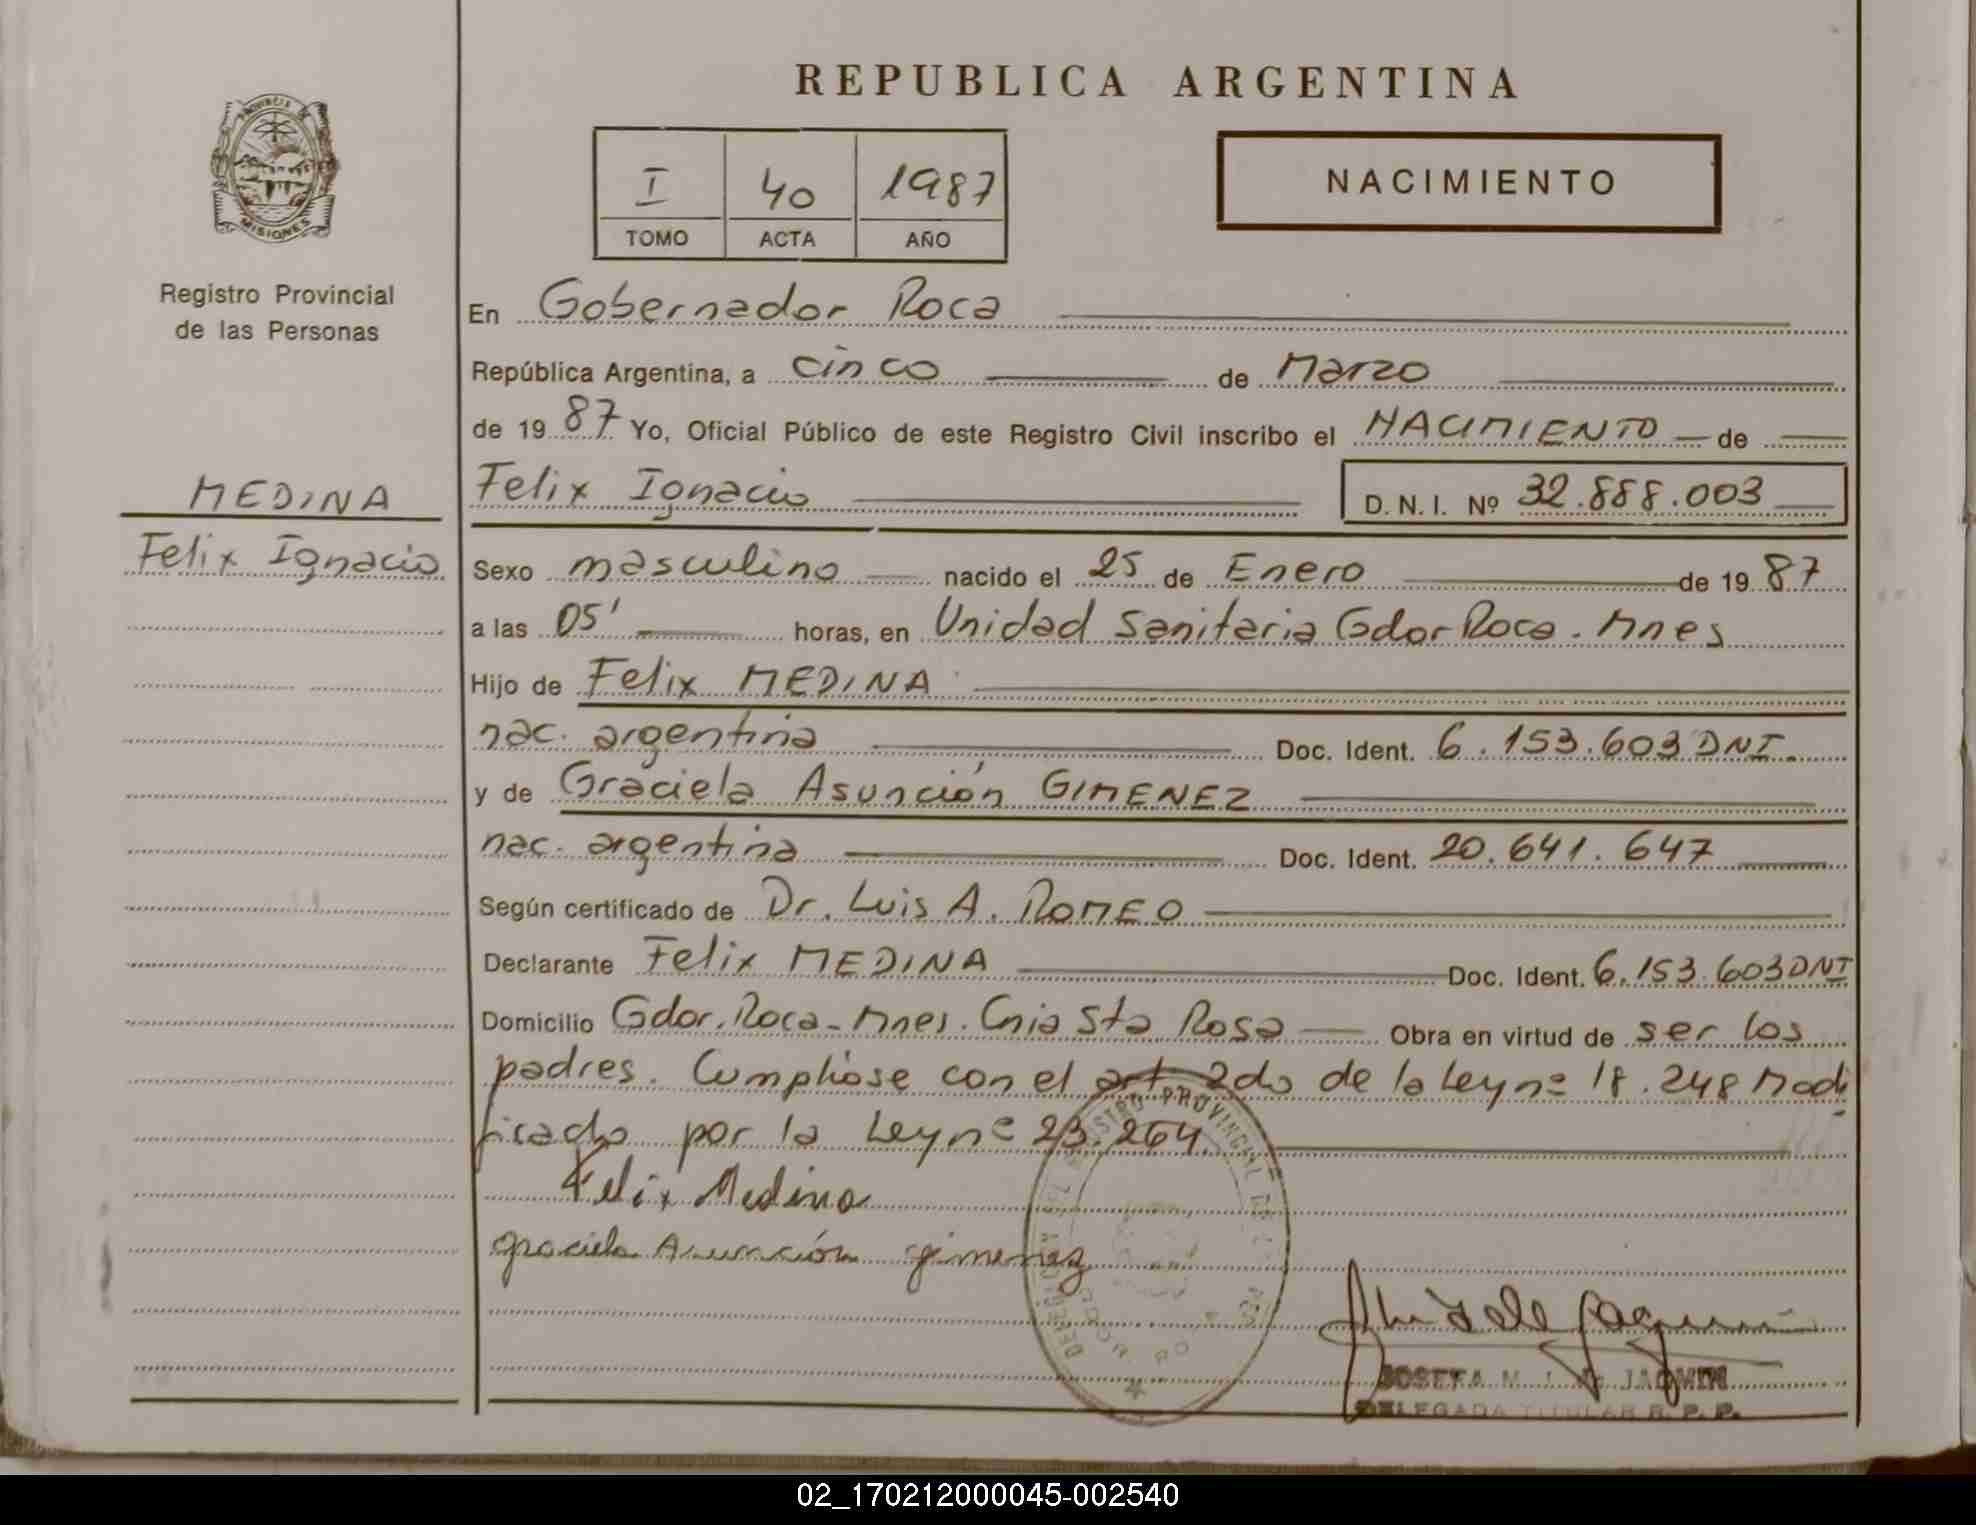 REPUBLICA ARGENTINA
PROVINCIA DE
MISIONES
Registro Provincial
de las Personas
I 40 1987
TOMO ACTA AÑO
NACIMIENTO
En Gobernador Roca
República Argentina, a cinco de Marzo
de 1987 Yo, Oficial Público de este Registro Civil inscribo el NACIMIENTO de
MEDINA
Felix Ignacio
Felix Ignacio D. N. I. Nº 32.888.003
Sexo masculino nacido el 25 de Enero de 1987
a las 05' horas, en Unidad Sanitaria Gdor Roca. Mnes
Hijo de Felix MEDINA
nac. argentina Doc. Ident. 6.153.603 DNI.
y de Graciela Asunción GIMENEZ
nac. argentina Doc. Ident. 20.641.647
Según certificado de Dr. Luis A. ROMEO
Declarante Felix MEDINA Doc. Ident. 6.153.603 DNI
Domicilio Gdor. Roca - Mnes. Cnia Sta Rosa Obra en virtud de ser los
padres. Cumpliose con el art 2do de la Ley nº 18.248 Modi
ficado por la Ley nº 23.264.
Felix Medina
graciela Asunción gimenez
REGISTRO PROVINCIAL DE
JOSEFA M. JACMIN
DELEGADA TITULAR R. P. P.
02_170212000045-002540